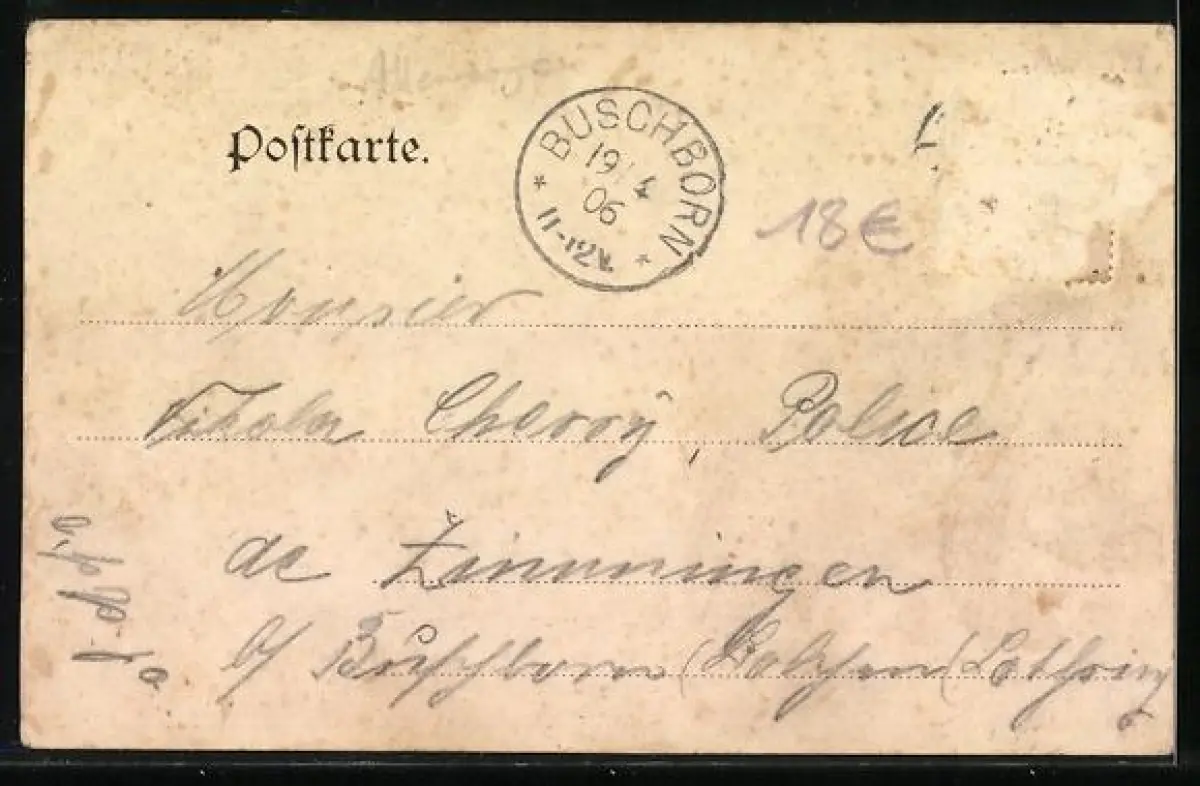 Postkarte.
BUSCHBORN
19 4
06
* 11-12V. *
18€
Monsieur
Nikolas Cherry, Police
de Zimmingen
b/ Buschborn (Bolchen (Lothring